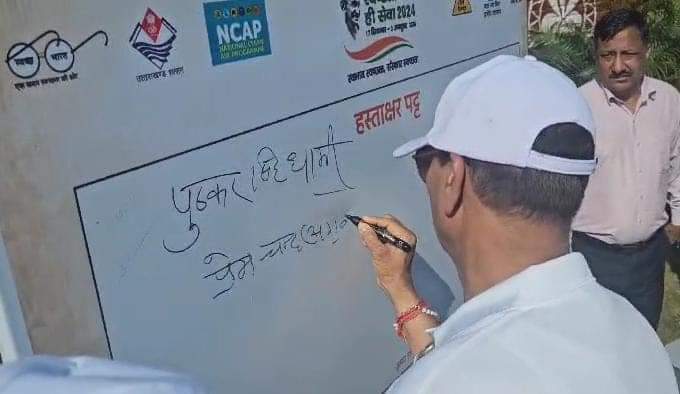 स्वच्छ भारत
एक कदम स्वच्छता की ओर
उत्तराखण्ड शासन
NCAP
NATIONAL CLEAN
AIR PROGRAMME
ही सेवा 2024
स्वभाव स्वच्छता, संस्कार स्वच्छता
हस्ताक्षर पट्ट
पुष्कर सिंह धामी
प्रेम चन्द अग्र